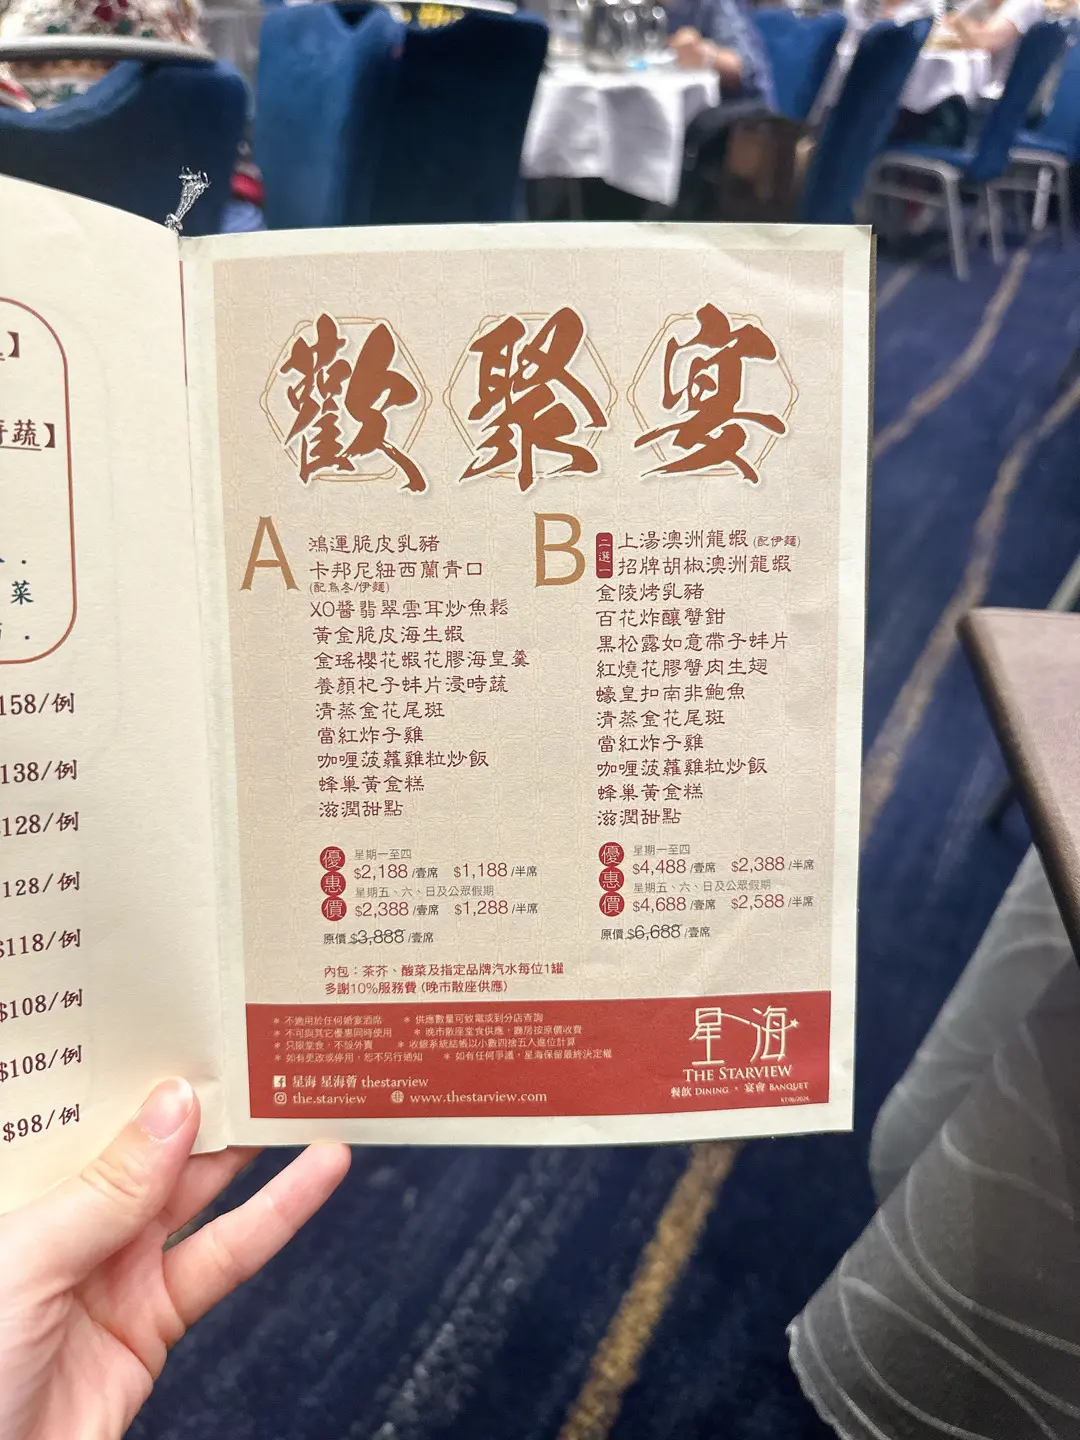 】
蔬】
菜
158/例
138/例
128/例
128/例
$118/例
$108/例
$108/例
$98/例
歡聚宴
A
鴻運脆皮乳豬
卡邦尼紐西蘭青口
(配烏冬/伊麵)
XO醬翡翠雲耳炒魚鬆
黃金脆皮海生蝦
金瑤櫻花蝦花膠海皇羹
養顏杞子蚌片浸時蔬
清蒸金花尾斑
當紅炸子雞
咖喱菠蘿雞粒炒飯
蜂巢黃金糕
滋潤甜點
優惠價
星期一至四
$2,188/壹席 $1,188/半席
星期五、六、日及公眾假期
$2,388/壹席 $1,288/半席
原價 $3,888/壹席
B
二選一
上湯澳洲龍蝦(配伊麵)
招牌胡椒澳洲龍蝦
金陵烤乳豬
百花炸釀蟹鉗
黑松露如意帶子蚌片
紅燒花膠蟹肉生翅
蠔皇扣南非鮑魚
清蒸金花尾斑
當紅炸子雞
咖喱菠蘿雞粒炒飯
蜂巢黃金糕
滋潤甜點
優惠價
星期一至四
$4,488/壹席 $2,388/半席
星期五、六、日及公眾假期
$4,688/壹席 $2,588/半席
原價 $6,688/壹席
內包：茶芥、酸菜及指定品牌汽水每位1罐
多謝10%服務費 (晚市散座供應)
* 不適用於任何婚宴酒席 * 供應數量可致電或到分店查詢
* 不可與其它優惠同時使用 * 晚市散座堂食供應，廳房按原價收費
* 只限堂食，不設外賣 * 收銀系統結帳以小數四捨五入進位計算
* 如有更改或停用，恕不另行通知 * 如有任何爭議，星海保留最終決定權
星海 星海薈 thestarview
the.starview www.thestarview.com
星海
THE STARVIEW
餐飲 DINING · 宴會 BANQUET